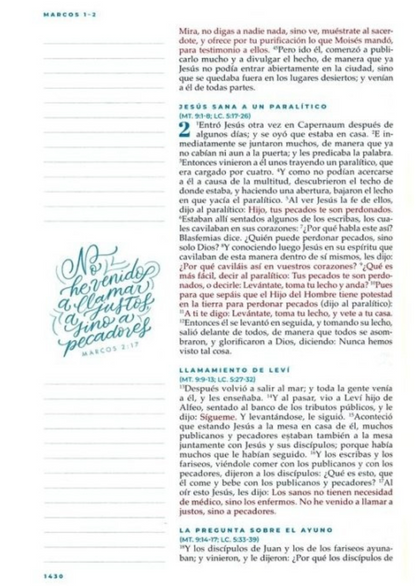 MARCOS 1–2
Mira, no digas a nadie nada, sino ve, muéstrate al sacer-
dote, y ofrece por tu purificación lo que Moisés mandó,
para testimonio a ellos. ⁴⁵Pero ido él, comenzó a publi-
carlo mucho y a divulgar el hecho, de manera que ya
Jesús no podía entrar abiertamente en la ciudad, sino
que se quedaba fuera en los lugares desiertos; y venían
a él de todas partes.
JESÚS SANA A UN PARALÍTICO
(MT. 9:1-8; LC. 5:17-26)
2 ¹Entró Jesús otra vez en Capernaum después de
algunos días; y se oyó que estaba en casa. ²E in-
mediatamente se juntaron muchos, de manera que ya
no cabían ni aun a la puerta; y les predicaba la palabra.
³Entonces vinieron a él unos trayendo un paralítico, que
era cargado por cuatro. ⁴Y como no podían acercarse
a él a causa de la multitud, descubrieron el techo de
donde estaba, y haciendo una abertura, bajaron el lecho
en que yacía el paralítico. ⁵Al ver Jesús la fe de ellos,
dijo al paralítico: Hijo, tus pecados te son perdonados.
⁶Estaban allí sentados algunos de los escribas, los cua-
les cavilaban en sus corazones: ⁷¿Por qué habla este así?
Blasfemias dice. ¿Quién puede perdonar pecados, sino
solo Dios? ⁸Y conociendo luego Jesús en su espíritu que
cavilaban de esta manera dentro de sí mismos, les dijo:
¿Por qué caviláis así en vuestros corazones? ⁹¿Qué es
más fácil, decir al paralítico: Tus pecados te son perdo-
nados, o decirle: Levántate, toma tu lecho y anda? ¹⁰Pues
para que sepáis que el Hijo del Hombre tiene potestad
en la tierra para perdonar pecados (dijo al paralítico):
¹¹A ti te digo: Levántate, toma tu lecho, y vete a tu casa.
¹²Entonces él se levantó en seguida, y tomando su lecho,
salió delante de todos, de manera que todos se asom-
braron, y glorificaron a Dios, diciendo: Nunca hemos
visto tal cosa.
No
he venido
a llamar
a justos,
sino a
pecadores
MARCOS 2:17
LLAMAMIENTO DE LEVÍ
(MT. 9:9-13; LC. 5:27-32)
¹³Después volvió a salir al mar; y toda la gente venía
a él, y les enseñaba. ¹⁴Y al pasar, vio a Leví hijo de
Alfeo, sentado al banco de los tributos públicos, y le
dijo: Sígueme. Y levantándose, le siguió. ¹⁵Aconteció
que estando Jesús a la mesa en casa de él, muchos
publicanos y pecadores estaban también a la mesa
juntamente con Jesús y sus discípulos; porque había
muchos que le habían seguido. ¹⁶Y los escribas y los
fariseos, viéndole comer con los publicanos y con los
pecadores, dijeron a los discípulos: ¿Qué es esto, que
él come y bebe con los publicanos y pecadores? ¹⁷Al
oír esto Jesús, les dijo: Los sanos no tienen necesidad
de médico, sino los enfermos. No he venido a llamar a
justos, sino a pecadores.
LA PREGUNTA SOBRE EL AYUNO
(MT. 9:14-17; LC. 5:33-39)
¹⁸Y los discípulos de Juan y los de los fariseos ayuna-
ban; y vinieron, y le dijeron: ¿Por qué los discípulos de
1430